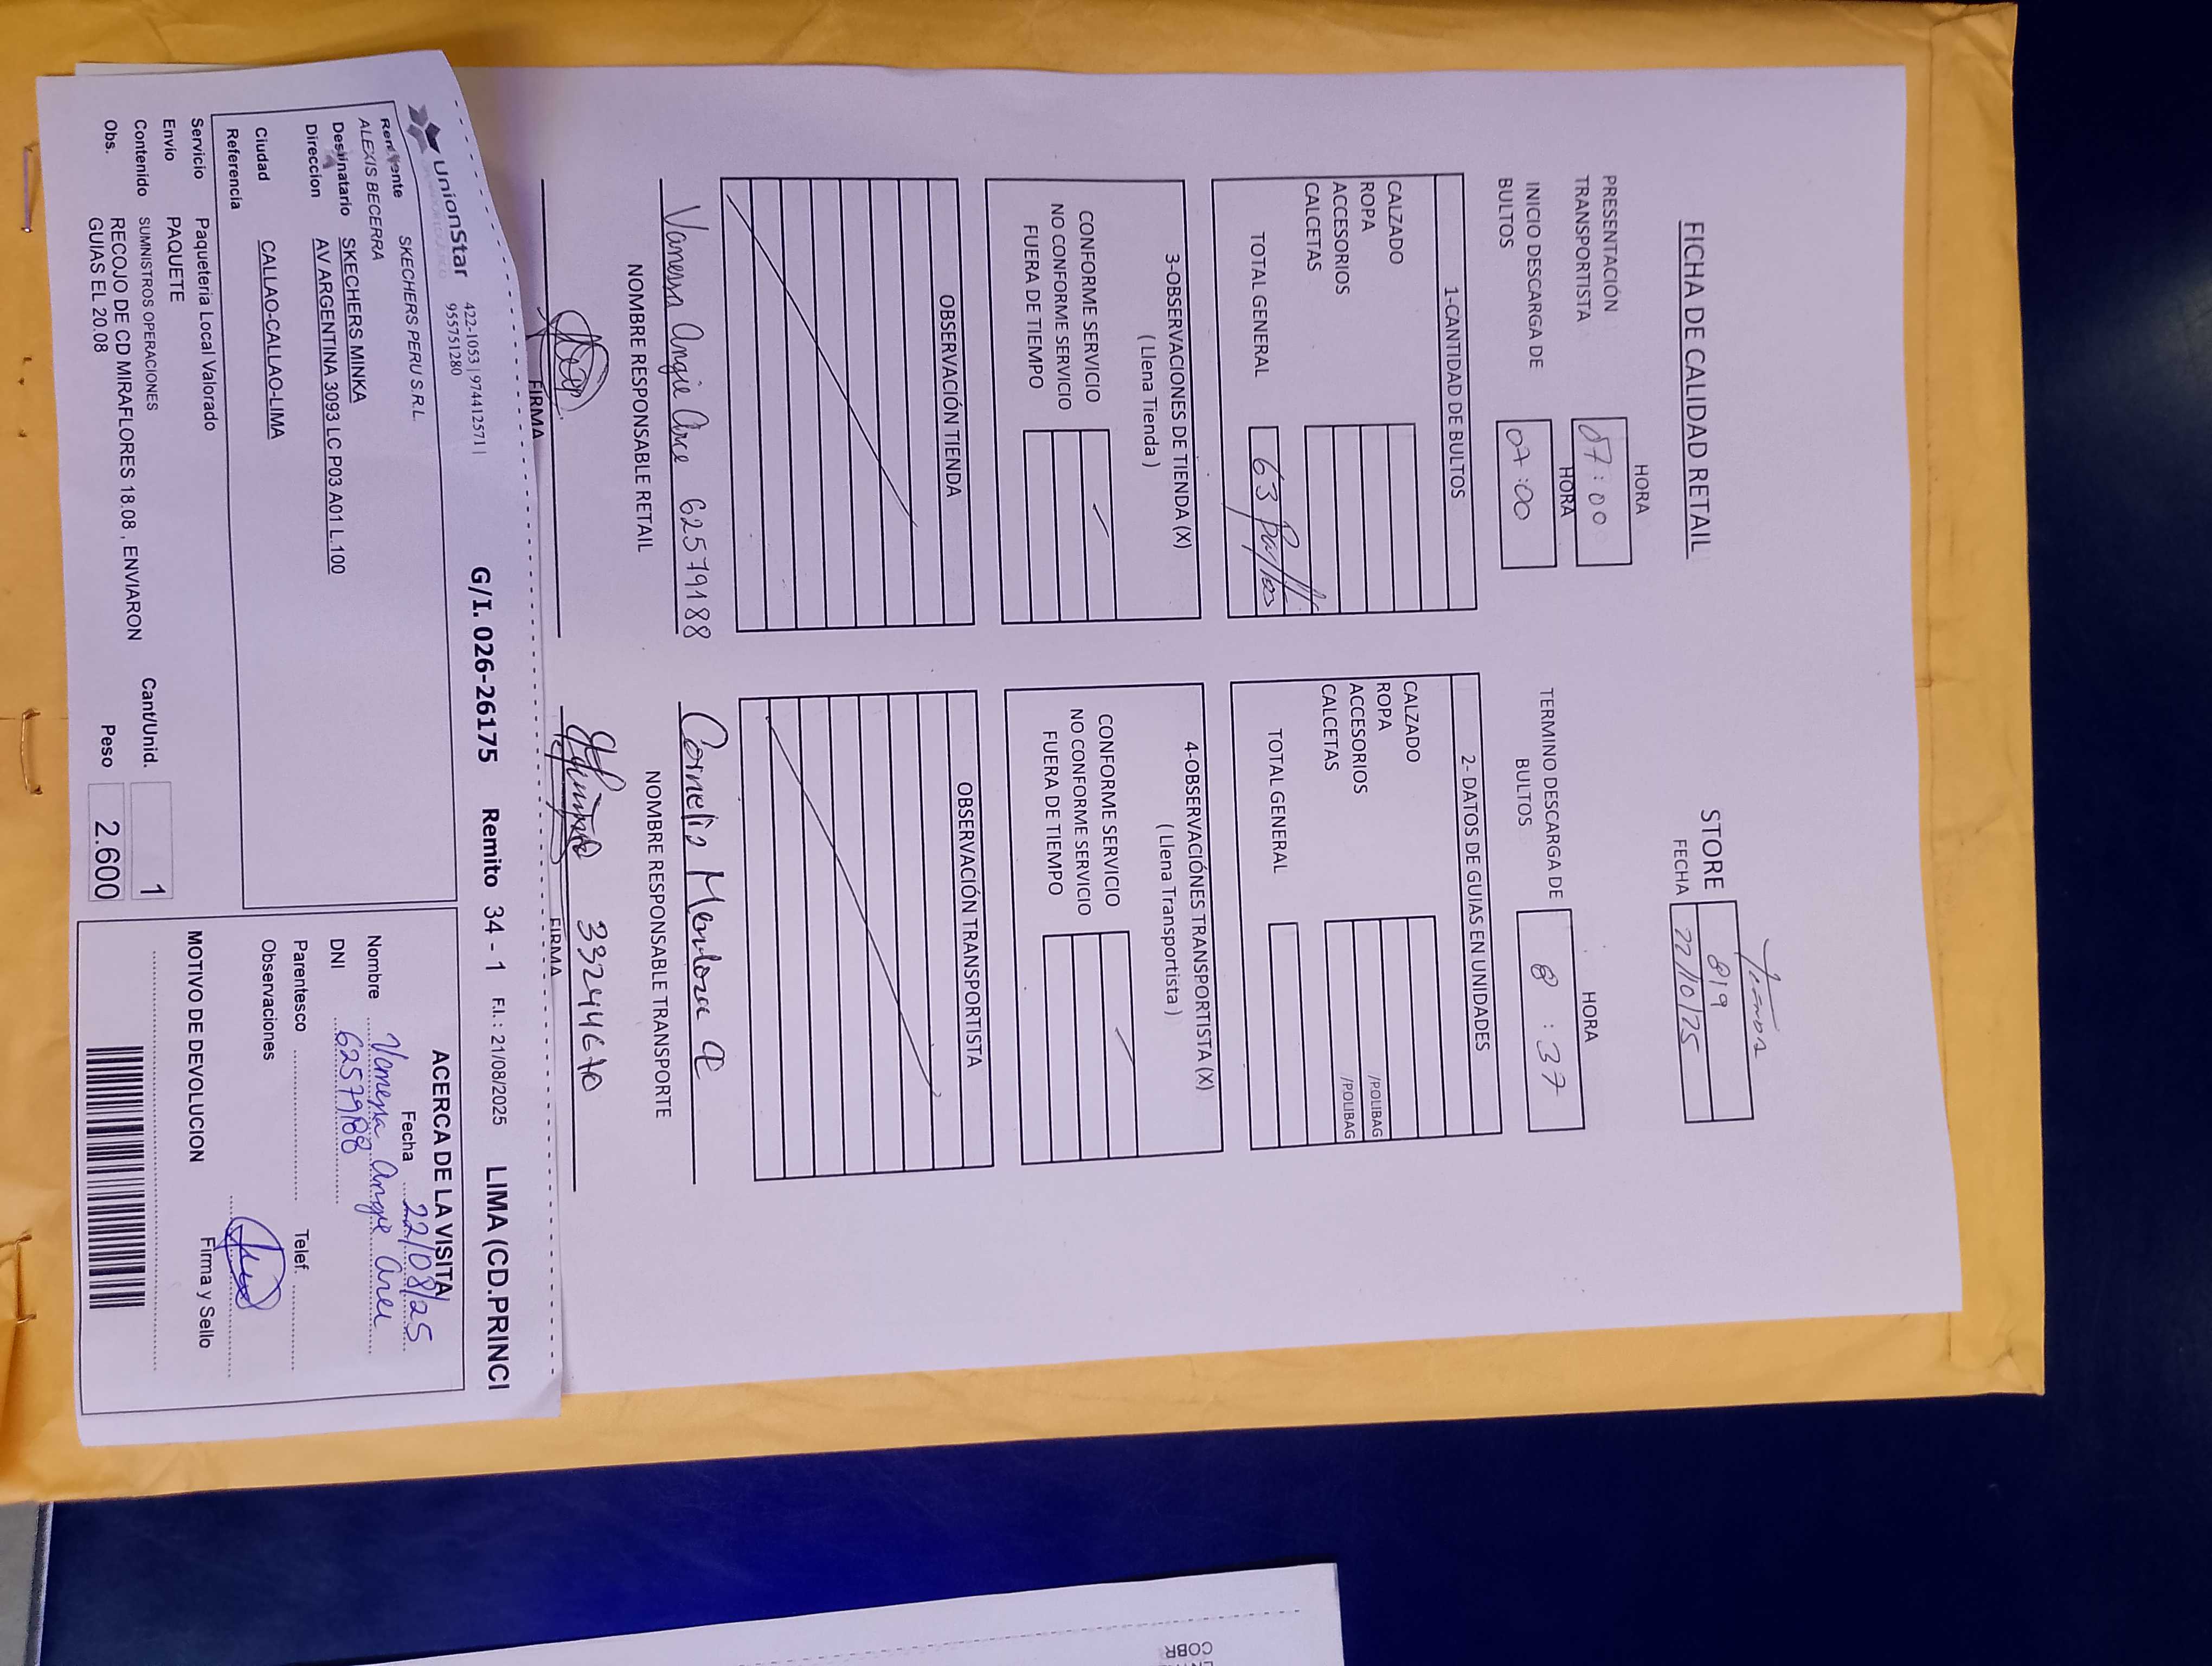 FICHA DE CALIDAD RETAIL
STORE 819
FECHA 22/10/25
HORA
PRESENTACIÓN TRANSPORTISTA 07:00
HORA
INICIO DESCARGA DE BULTOS 07:00
HORA
TERMINO DESCARGA DE BULTOS 8:37
1-CANTIDAD DE BULTOS
CALZADO
ROPA
ACCESORIOS
CALCETAS
TOTAL GENERAL 63
2- DATOS DE GUIAS EN UNIDADES
CALZADO
ROPA /POLIBAG
ACCESORIOS /POLIBAG
CALCETAS
TOTAL GENERAL
3-OBSERVACIONES DE TIENDA (X)
( Llena Tienda )
CONFORME SERVICIO ✓
NO CONFORME SERVICIO
FUERA DE TIEMPO
4-OBSERVACIÓNES TRANSPORTISTA (X)
( Llena Transportista )
CONFORME SERVICIO ✓
NO CONFORME SERVICIO
FUERA DE TIEMPO
OBSERVACIÓN TIENDA
OBSERVACIÓN TRANSPORTISTA
Vanessa Angie Arce 62579188
NOMBRE RESPONSABLE RETAIL
Cornelio Mendoza
NOMBRE RESPONSABLE TRANSPORTE
33244670
FIRMA
FIRMA
UnionStar
422-1053 | 974412571 |
955751280
G/I. 026-26175 Remito 34 - 1 F.I.: 21/08/2025 LIMA (CD.PRINCI
Remitente SKECHERS PERU S.R.L.
ALEXIS BECERRA
Destinatario SKECHERS MINKA
Direccion AV ARGENTINA 3093 LC P03 A01 L.100
Ciudad CALLAO-CALLAO-LIMA
Referencia
Servicio Paqueteria Local Valorado
Envío PAQUETE
Contenido SUMNISTROS OPERACIONES
Obs. RECOJO DE CD MIRAFLORES 18.08 , ENVIARON
GUIAS EL 20.08
Cant/Unid. 1
Peso 2.600
ACERCA DE LA VISITA
Fecha 22/08/25
Nombre Vanessa Angie Arce
DNI 62579188
Parentesco Telef.
Observaciones
Firma y Sello
MOTIVO DE DEVOLUCION
COBR